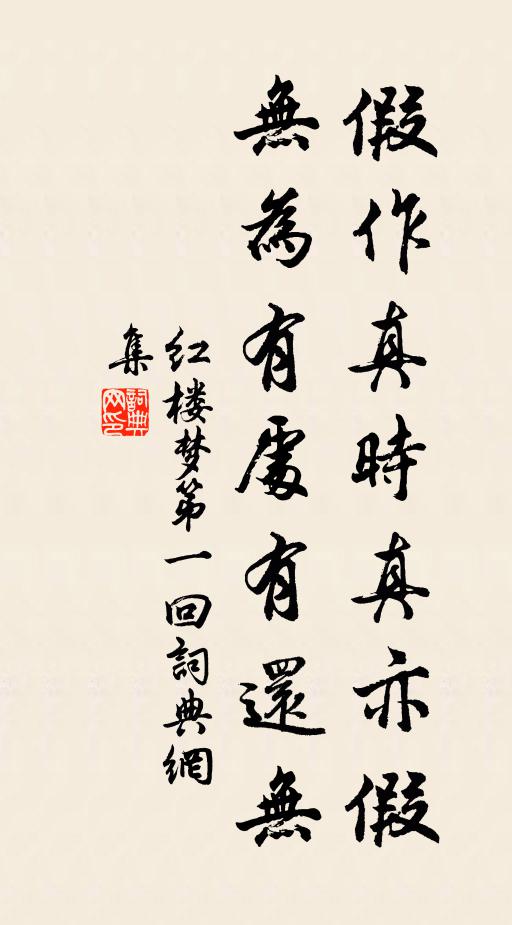 假作真時真亦假
無為有處有還無
红楼梦第一回詞典網
集
詞典
网印